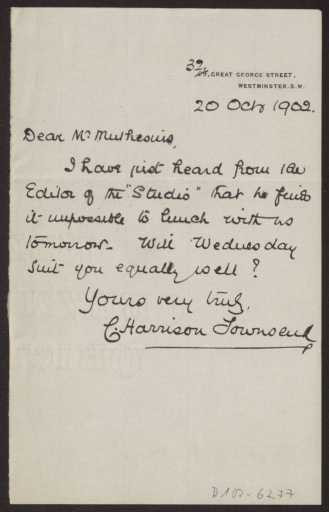 32, GREAT GEORGE STREET,
WESTMINSTER. S.W.
20 Octr 1902.
Dear Mr Muthesius,
I have just heard from the
Editor of the "Studio" that he finds
it impossible to lunch with us
tomorrow. Will Wednesday
suit you equally well?
Yours very truly,
C. Harrison Townsend
D 102-6277